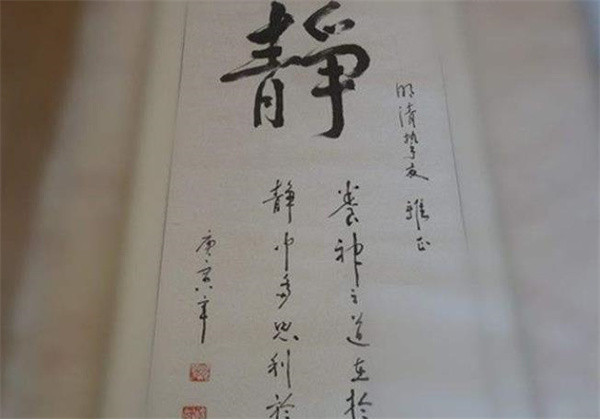 静
明清挚友 雅正
養神之道在於
静中多思利於
庚寅年